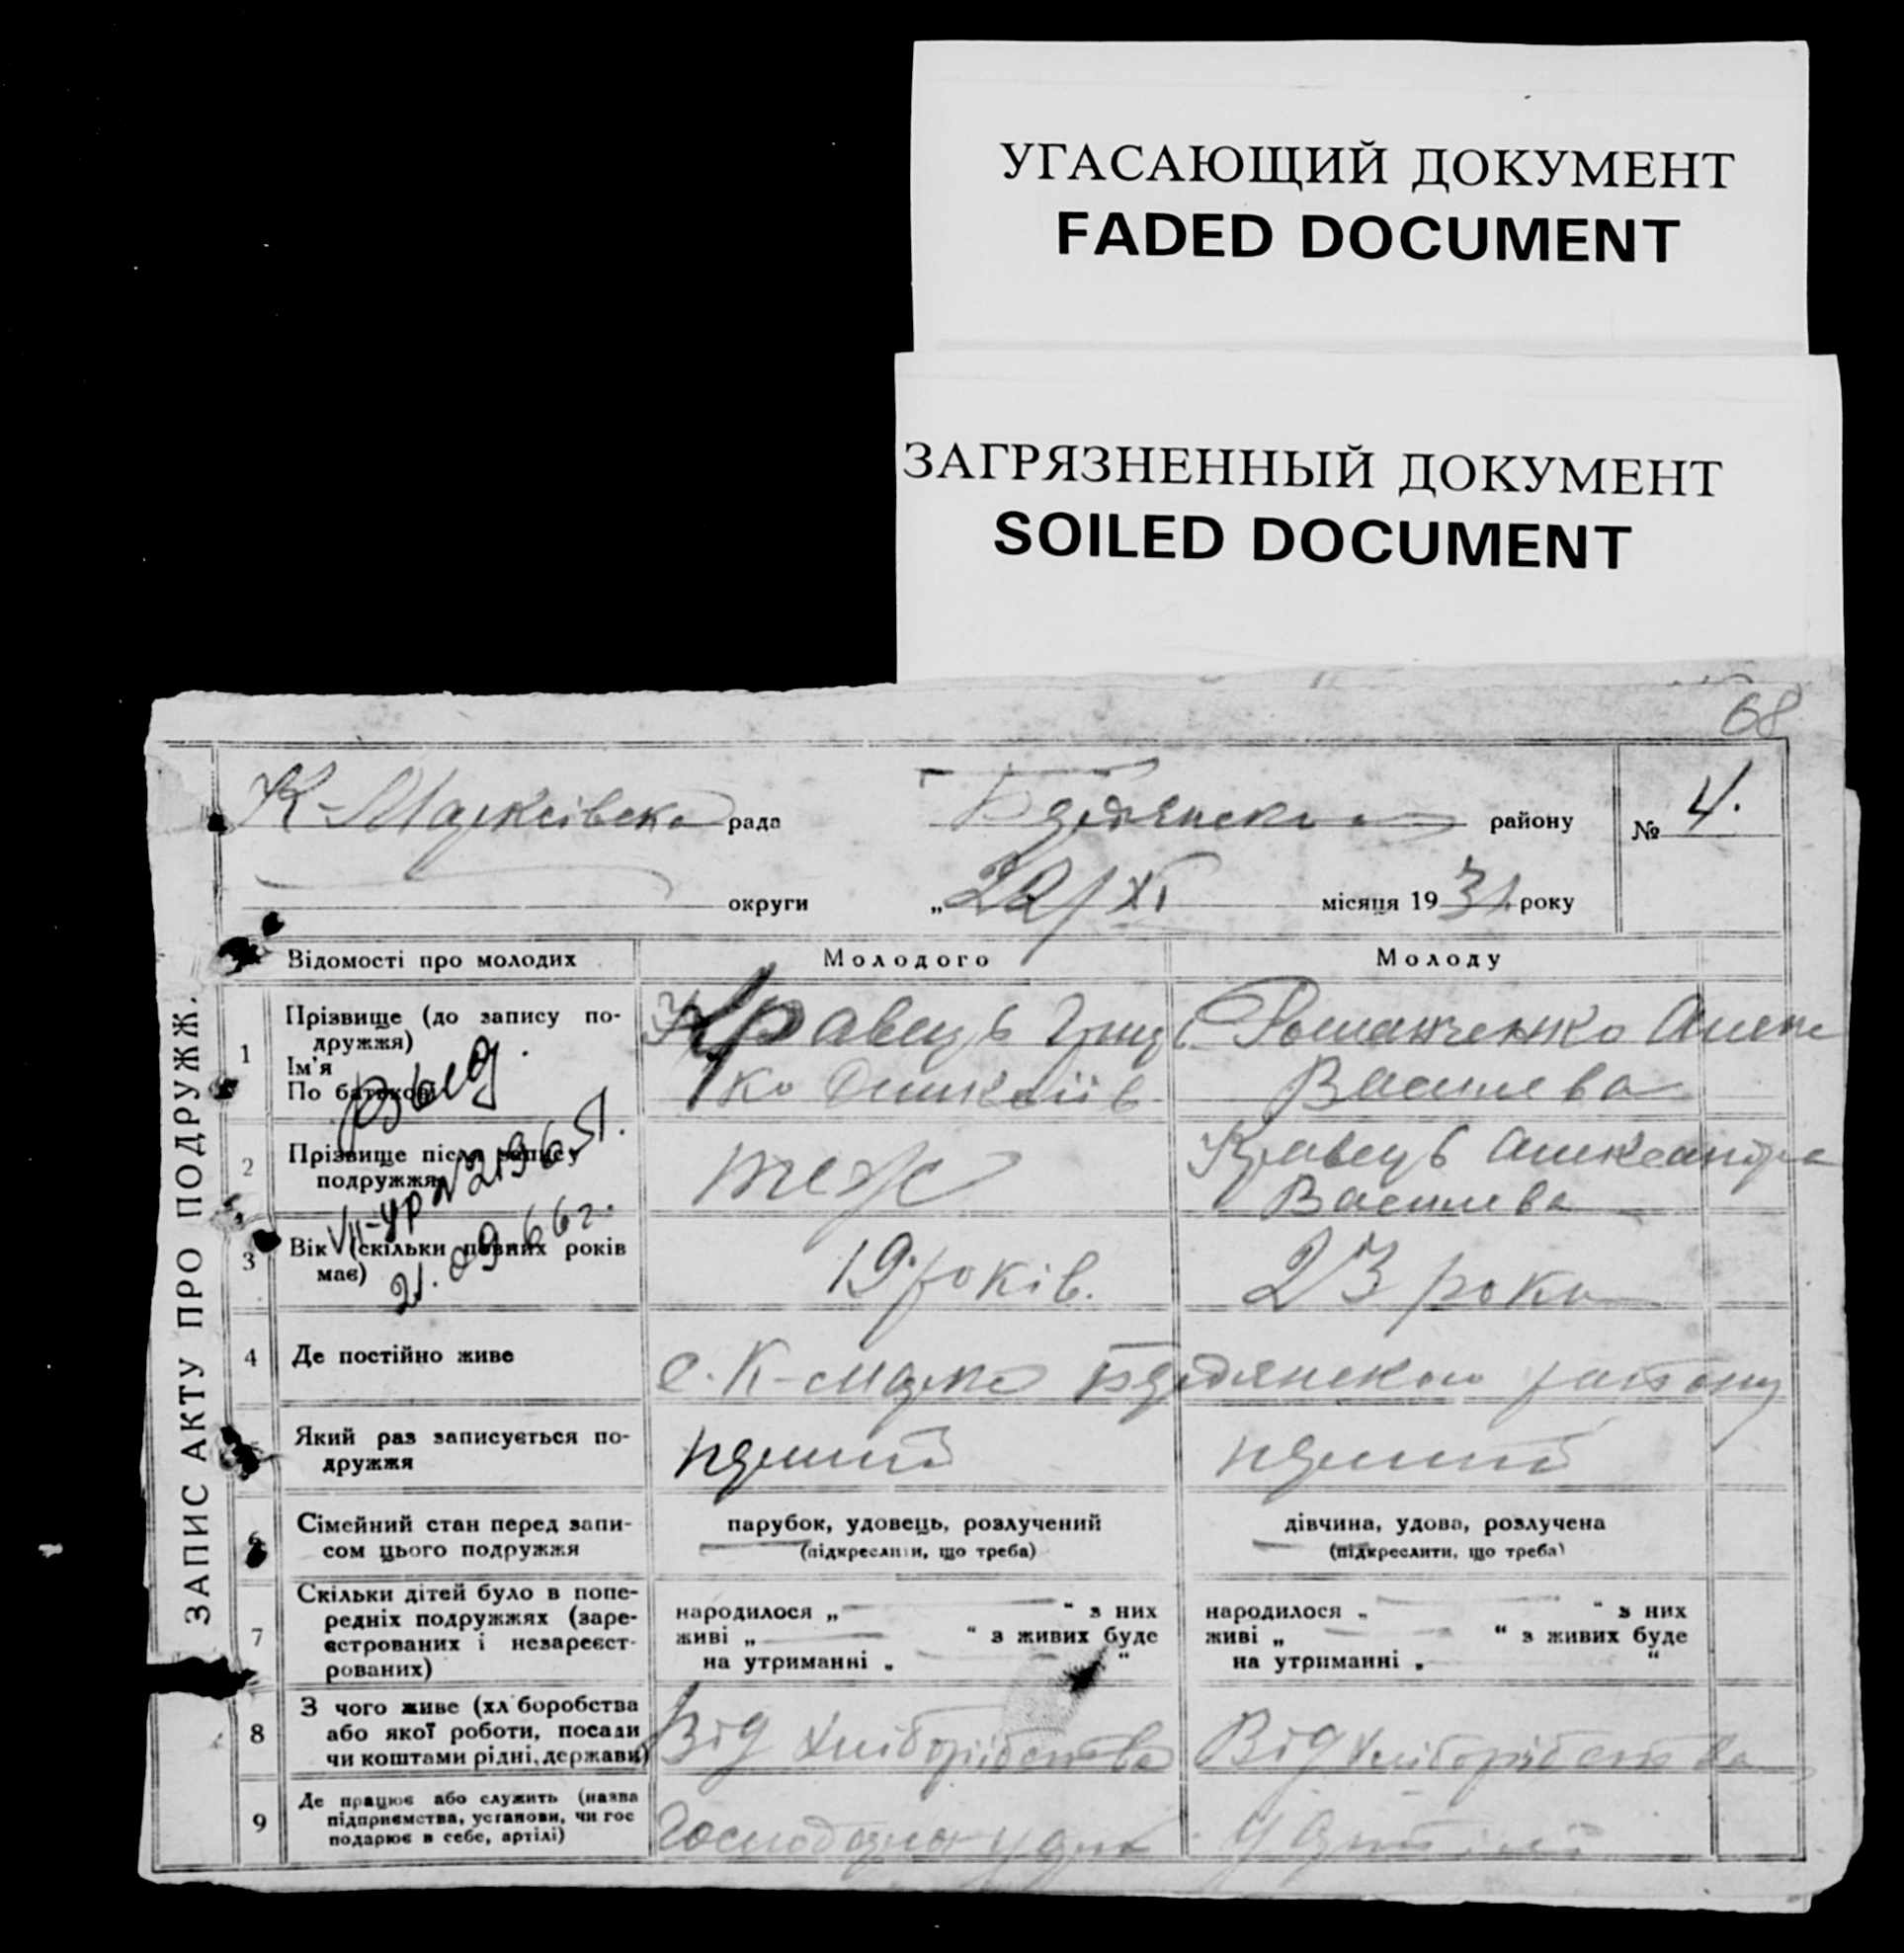 УГАСАЮЩИЙ ДОКУМЕНТ
FADED DOCUMENT
ЗАГРЯЗНЕННЫЙ ДОКУМЕНТ
SOILED DOCUMENT
68
ЗАПИС АКТУ ПРО ПОДРУЖЖ.
К-Марксівська рада
Бердянського району
№ 4.
округи
„22/XI місяця 1931 року
Відомості про молодих
Молодого
Молоду
1
Прізвище (до запису по-
дружжя)
Ім'я
По батькові
Кравець Гриць
ко Олексіїв
Романченко Олек
Василева
2
Прізвище після запису
подружжя
теж
Кравець Олександра
Василева
VII-УР № 219651.
21.09.66г.
3
Вік (скільки повних років
має)
19 років.
23 роки
4
Де постійно живе
с. К-Маркс Бердянського району
Який раз записується по-
дружжя
перший
перший
6
Сімейний стан перед запи-
сом цього подружжя
парубок, удовець, розлучений
(підкреслити, що треба)
дівчина, удова, розлучена
(підкреслити, що треба)
7
Скільки дітей було в попе-
редніх подружжях (заре-
єстрованих і незареєст-
рованих)
народилося „ “ з них
живі „ “ з живих буде
на утриманні „ “
народилося „ “ з них
живі „ “ з живих буде
на утриманні „ “
8
З чого живе (хліборобства
або якої роботи, посади
чи коштами рідні, держави)
Від хліборобства
Від хліборобства
9
Де працює або служить (назва
підприємства, установи, чи гос
подарює в себе, артілі)
У Артілі